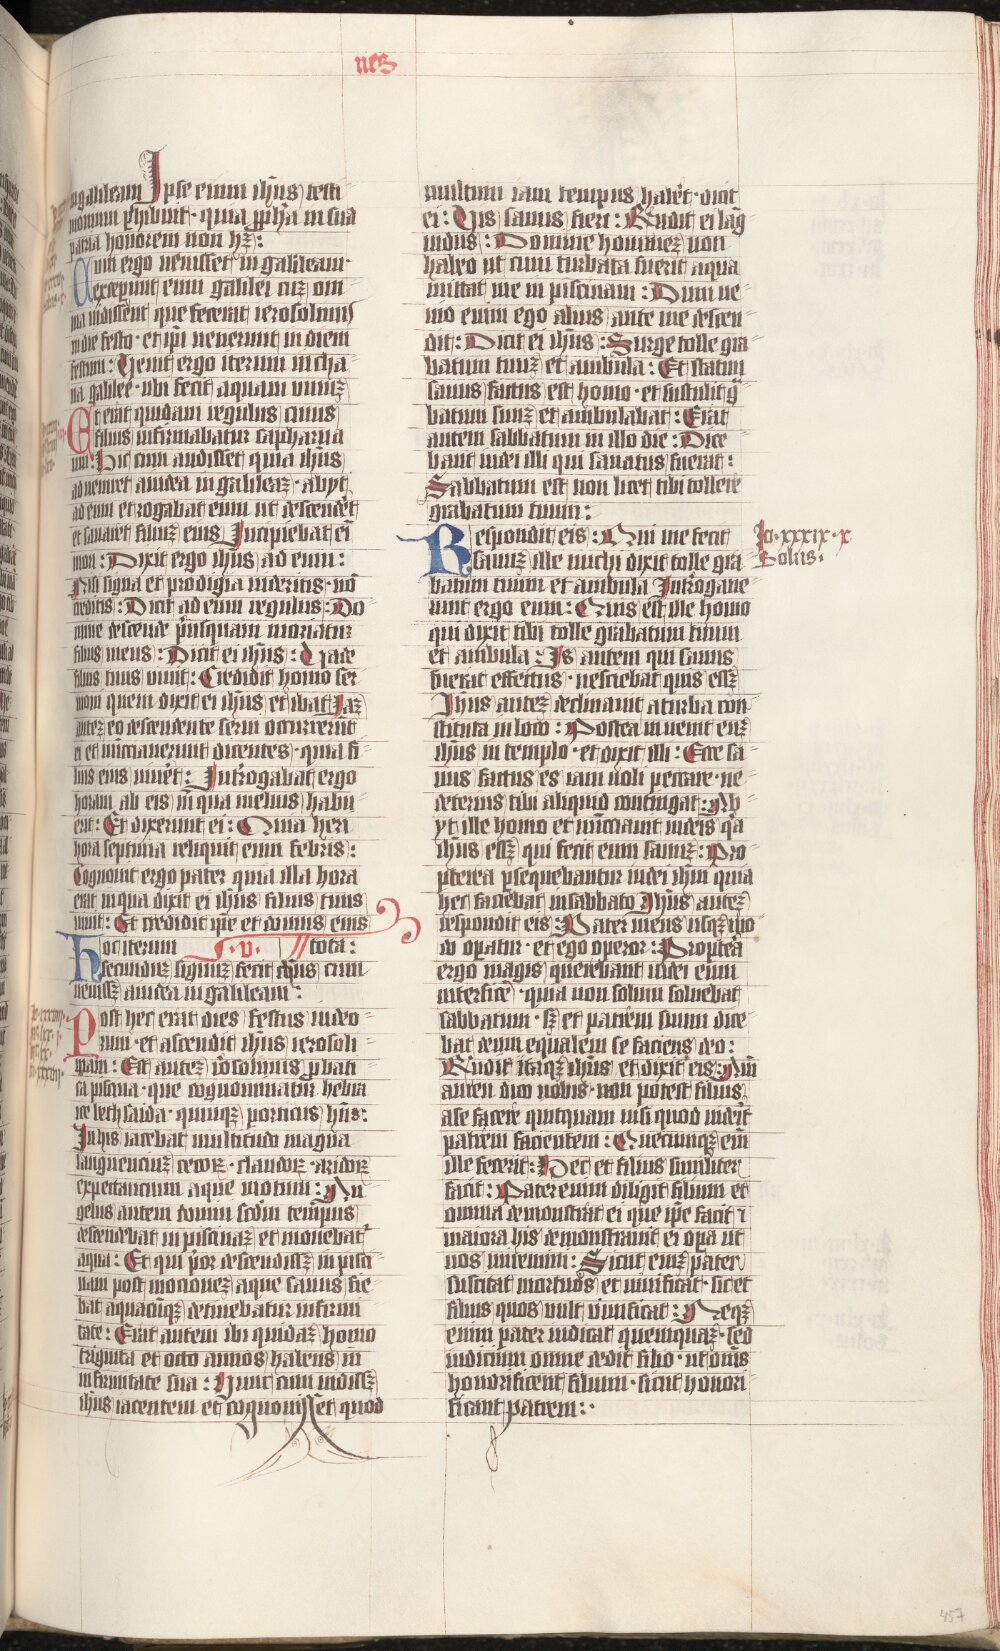 nes
in galileam Ipse enim ihus testi
monium phibuit · quia ppha in sua
patria honorem non hz :
Cum ergo venisset in galileam ·
exceperunt eum galilei cuz om
nia vidissent que fecerat ierosolimis
in die festo · et ipi venerunt in diem
festum : Venit ergo iterum in cha
na galilee · ubi fecit aquam vinuz
Et erat quidam regulus cuius
filius infirmabatur capharna
um : Hic cum audisset quia ihus
adveniret a iudea in galileaz · abyt
ad eum et rogabat eum ut descendet
et sanaret filiuz eius Incipiebat eni
mori : Dixit ergo ihus ad eum :
Nisi signa et prodigia videritis · no
creditis : Dicit ad eum regulus : Do
mine descende priusquam moriatur
filius meus : Dicit ei ihus : Vade
filius tuus vivit : Credidit homo ser
moni quem dixit ei ihus et ibat Iaz
autez eo descendente servi occurrerunt
ei et nunciaverunt dicentes · quia fi
lius eius viveret : Introgabat ergo
horam ab eis in qua melius habu
erit : Et dixerunt ei : Quia heri
hora septima reliquit eum febris :
Cognovit ergo pater quia illa hora
erat in qua dixit ei ihus filius tuus
vivit : Et credidit ipe et domus eius
Hoc iterum · v · tota :
secunduz signuz fecit ihus cum
venissz a iudea in galileam :
Post hec erat dies festus iudeo
rum · et ascendit ihus ierosoli
mam : Est autez iosolimis pbati
ca piscina · que cognominatur hebra
ice bethsaida · quinqz porticus hns :
In his iacebat multitudo magna
languenciuz cecorz · claudorz · aridorz
expectancium aque motum : An
gelus autem domini scdm tempus
descendebat in piscinaz et movebat
aqua : Et qui prior descendissz in pisci
nam post mocionez aque sanus fie
bat a quacuqz detinebatur infirmi
tate : Erat autem ibi quidaz homo
triginta et octo annos habens in
infirmitate sua : Hunc cum vidissz
ihus iacentem et cognovisset quod
multum iam tempus haberet · dicit
ei : Vis sanus fieri : Rndit ei lag
uidus : Domine hominez non
habeo ut cum turbata fuerit aqua
mittat me in piscinam : Dum ve
nio enim ego alius ante me descen
dit : Dicit ei ihus : Surge tolle gra
batum tuuz et ambula : Et statim
sanus factus est homo · et sustulit gra
batum suuz et ambulabat : Erat
autem sabbatum in illo die : Dice
bant iudei illi qui sanatus fuerat :
Sabbatum est non licet tibi tollere
grabatum tuum :
Respondit eis : Qui me fecit
sanuz ille michi dixit tolle gra
batum tuum et ambula Introgave
runt ergo eum : Quis est ille homo
qui dixit tibi tolle grabatum tuum
et ambula : Is autem qui sanus
fuerat effectus · nesciebat quis essz
Ihus autez declinavit a turba con
stituta in loco : Postea invenit euz
ihus in templo · et dixit illi : Ecce sa
nus factus es iam noli peccare · ne
deterius tibi aliquid contingat : Ab
yt ille homo et nunciavit iudeis qa
ihus essz qui fecit eum sanuz : Pro
pterea psequebantur iudei ihm quia
hec faciebat in sabbato Ihus autez
respondit eis : Pater meus usqz mo
do opatur · et ego operor : Proptea
ergo magis querebant iudei eum
interfice · quia non solum solvebat
sabbatum · sz et patrem suum dice
bat deum equalem se faciens deo :
Rndit itaqz ihus et dixit eis : Am
amen dico vobis · non potest filius
a se facere quicquam nisi quod viderit
patrem facientem : Quecunqz eni
ille fecerit : Hec et filius similiter
facit : Pater enim diligit filium et
omnia demonstrat ei que ipe facit i
maiora his demonstravit ei opa ut
vos miremini : Sicut enz pater
suscitat mortuos et vivificat · sic et
filius quos vult vivificat : Neqz
enim pater iudicat quemquaz · sed
iudicium omne dedit filio · ut omes
honorificent filium · sicut honori
ficant patrem :
Io · xxxix · x
Solus ·
457